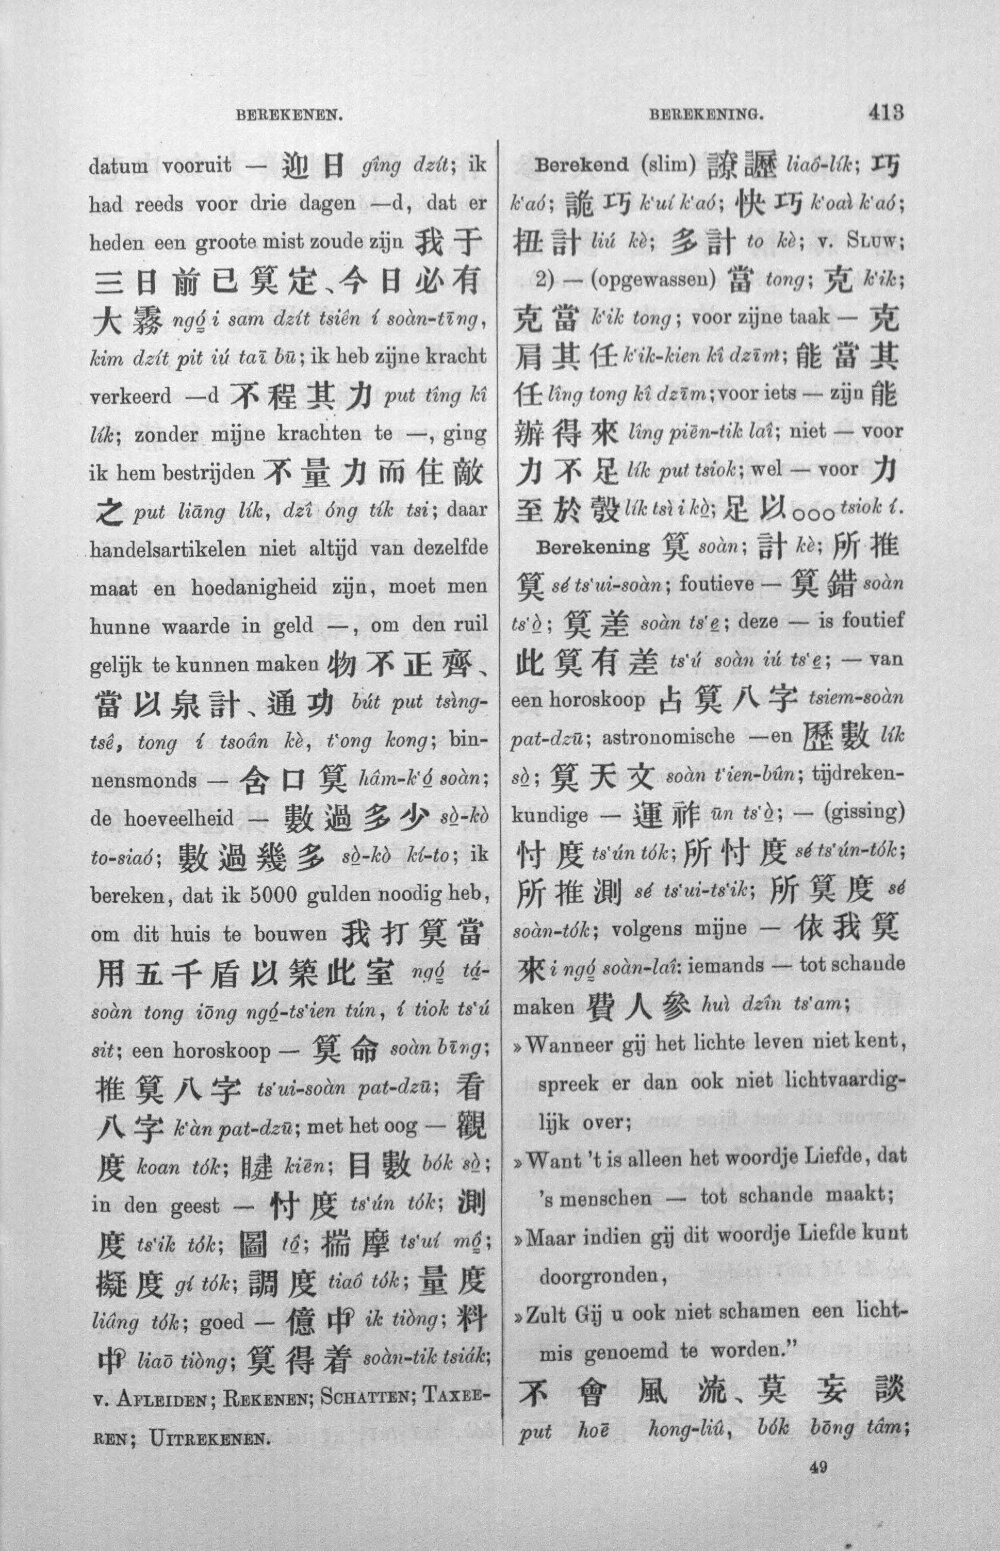 BEREKENEN.
BEREKENING. 413
datum vooruit — 迎日 gîng dzít; ik
had reeds voor drie dagen —d, dat er
heden een groote mist zoude zijn 我于
三日前已筭定、今日必有
大霧 ngó̤ i sam dzít tsiên í soàn-tīng,
kim dzít pit iú taī bū; ik heb zijne kracht
verkeerd —d 不程其力 put tîng kî
lík; zonder mijne krachten te —, ging
ik hem bestrijden 不量力而住敵
之 put liāng lík, dzî óng tík tsi; daar
handelsartikelen niet altijd van dezelfde
maat en hoedanigheid zijn, moet men
hunne waarde in geld —, om den ruil
gelijk te kunnen maken 物不正齊、
當以泉計、通功 bút put tsìng-
tsê, tong í tsoân kè, t‘ong kong; bin-
nensmonds — 含口筭 hâm-k‘ó̤ soàn;
de hoeveelheid — 數過多少 sò̤-kò
to-siaó; 數過幾多 sò̤-kò kí-to; ik
bereken, dat ik 5000 gulden noodig heb,
om dit huis te bouwen 我打筭當
用五千盾以築此室 ngó̤ tá̤-
soàn tong iōng ngó̤-ts‘ien tún, í tiok ts‘ú
sit; een horoskoop — 筭命 soàn bīng;
推筭八字 ts‘ui-soàn pat-dzū; 看
八字 k‘àn pat-dzū; met het oog — 觀
度 koan tók; 睷 kiēn; 目數 bók sò̤;
in den geest — 忖度 ts‘ún tók; 測
度 ts‘ik tók; 圖 tô̤; 揣摩 ts‘uí mô̤;
擬度 gí tók; 調度 tiaô tók; 量度
liâng tók; goed — 億中 ik tiòng; 料
中 liaō tiòng; 筭得着 soàn-tik tsiák;
v. AFLEIDEN; REKENEN; SCHATTEN; TAXEE-
REN; UITREKENEN.
Berekend (slim) 諒讈 liaô-lík; 巧
k‘aó; 詭巧 k‘uí k‘aó; 快巧 k‘oaì k‘aó;
扭計 liú kè; 多計 to kè; v. SLUW;
2) — (opgewassen) 當 tong; 克 k‘ik;
克當 k‘ik tong; voor zijne taak — 克
肩其任 k‘ik-kien kî dzīm; 能當其
任 lîng tong kî dzīm; voor iets — zijn 能
辦得來 lîng piēn-tik laî; niet — voor
力不足 lík put tsiok; wel — voor 力
至於彀 lík tsì i kò̤; 足以○○○ tsiok í.
Berekening 筭 soàn; 計 kè; 所推
筭 sé ts‘ui-soàn; foutieve — 筭錯 soàn
ts‘ò̤; 筭差 soàn ts‘e̤; deze — is foutief
此筭有差 ts‘ú soàn iú ts‘e̤; — van
een horoskoop 占筭八字 tsiem-soàn
pat-dzū; astronomische —en 歷數 lík
sò̤; 筭天文 soàn t‘ien-bûn; tijdreken-
kundige — 運祚 ūn ts‘ò̤; — (gissing)
忖度 ts‘ún tók; 所忖度 sé ts‘ún-tók;
所推測 sé ts‘ui-ts‘ik; 所筭度 sé
soàn-tók; volgens mijne — 依我筭
來 i ngó̤ soàn-laî: iemands — tot schande
maken 費人參 huì dzîn ts‘am;
»Wanneer gij het lichte leven niet kent,
spreek er dan ook niet lichtvaardig-
lijk over;
»Want 't is alleen het woordje Liefde, dat
's menschen — tot schande maakt;
»Maar indien gij dit woordje Liefde kunt
doorgronden,
»Zult Gij u ook niet schamen een licht-
mis genoemd te worden.”
不會風流、莫妄談
put hoē hong-liû, bók bōng tâm;
49